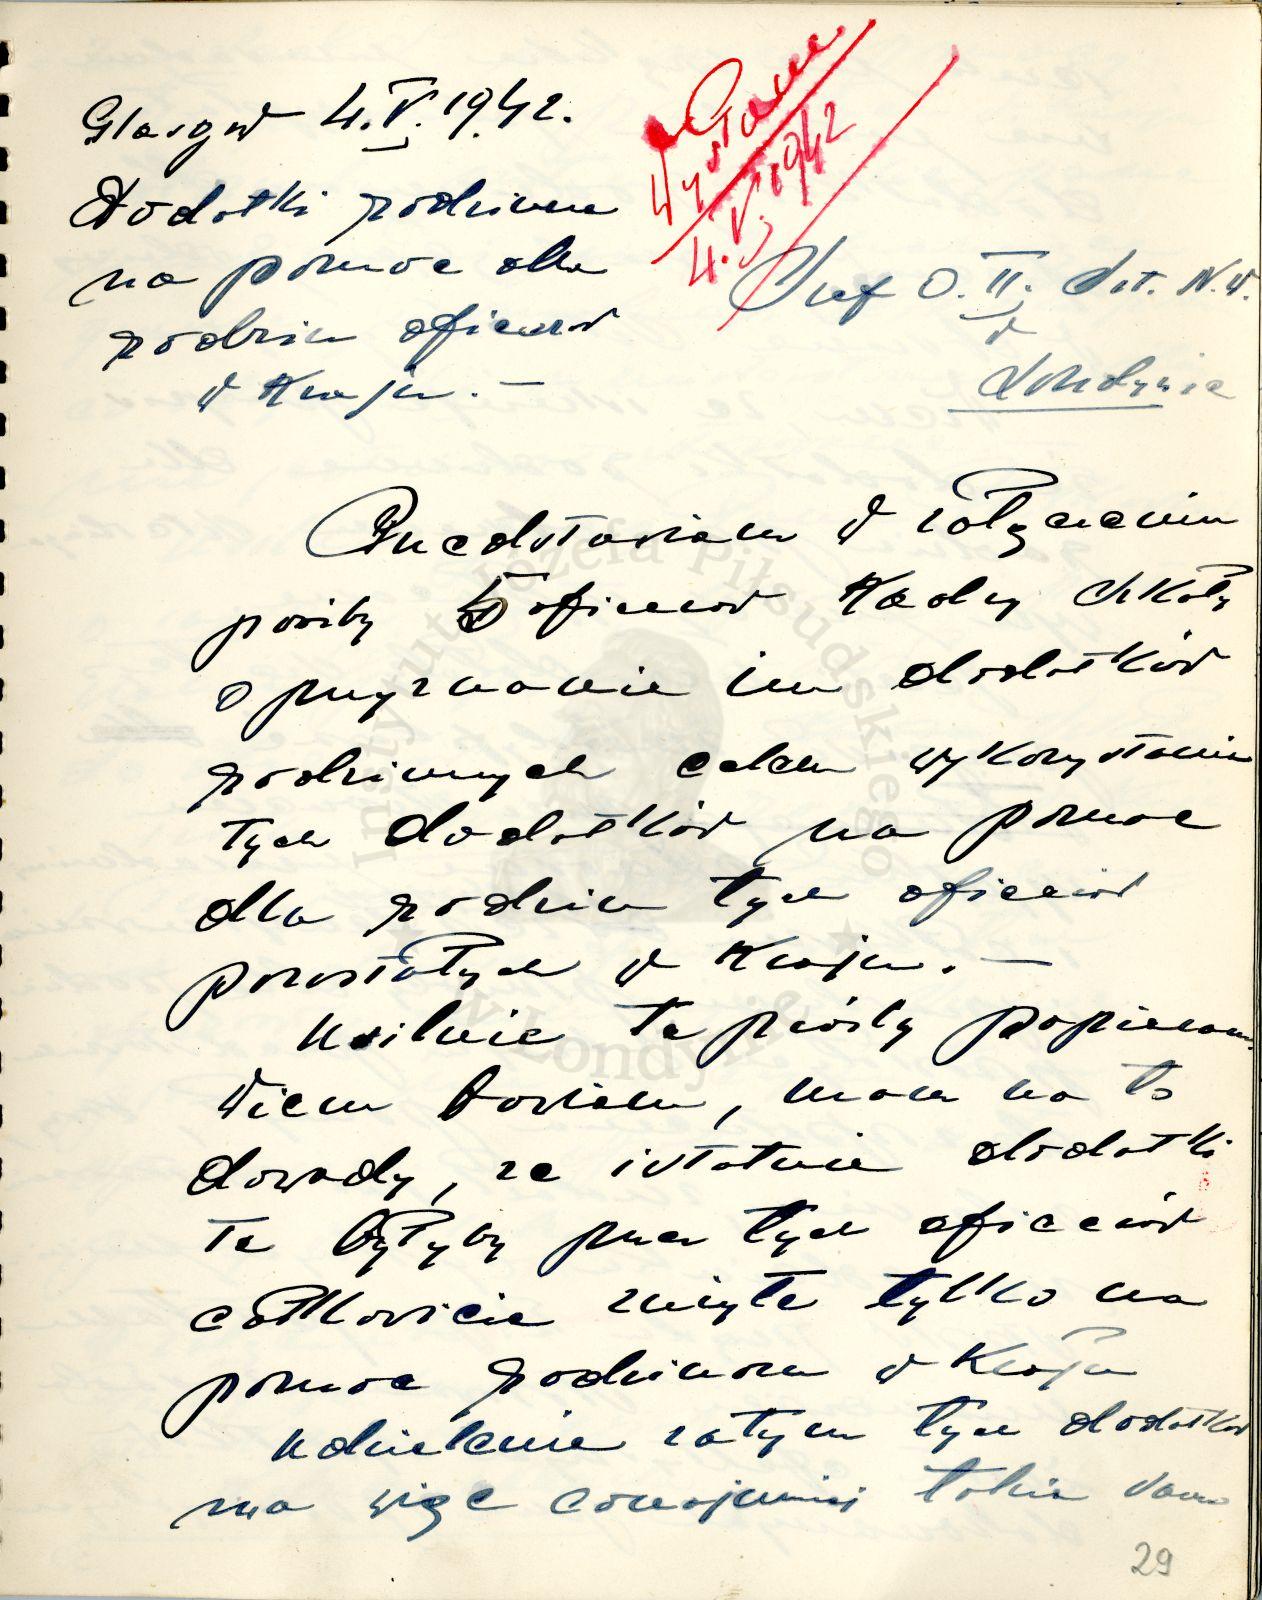 Glasgow 4.V.1942.
Wysłane
4.V.1942
Dodatki rodzinne
na pomoc dla
rodzin oficerów
w Kraju. —
Szef O.II. Szt. N.W.
w
Londynie
Przedstawiam w załączeniu
prośby 5 oficerów Kadry Szkoły
o przyznanie im dodatków
rodzinnych celem wykorzystania
tych dodatków na pomoc
dla rodzin tych oficerów
pozostałych w Kraju. —
Usilnie te prośby popieram.
Wiem bowiem, mam na to
dowody, że istotnie dodatki
te byłyby przez tych oficerów
całkowicie zużyte tylko na
pomoc rodzinom w Kraju
Udzielenie zatym tych dodatków
ma więc conajmniej takie same
29
Instytut Józefa Piłsudskiego
w Londynie